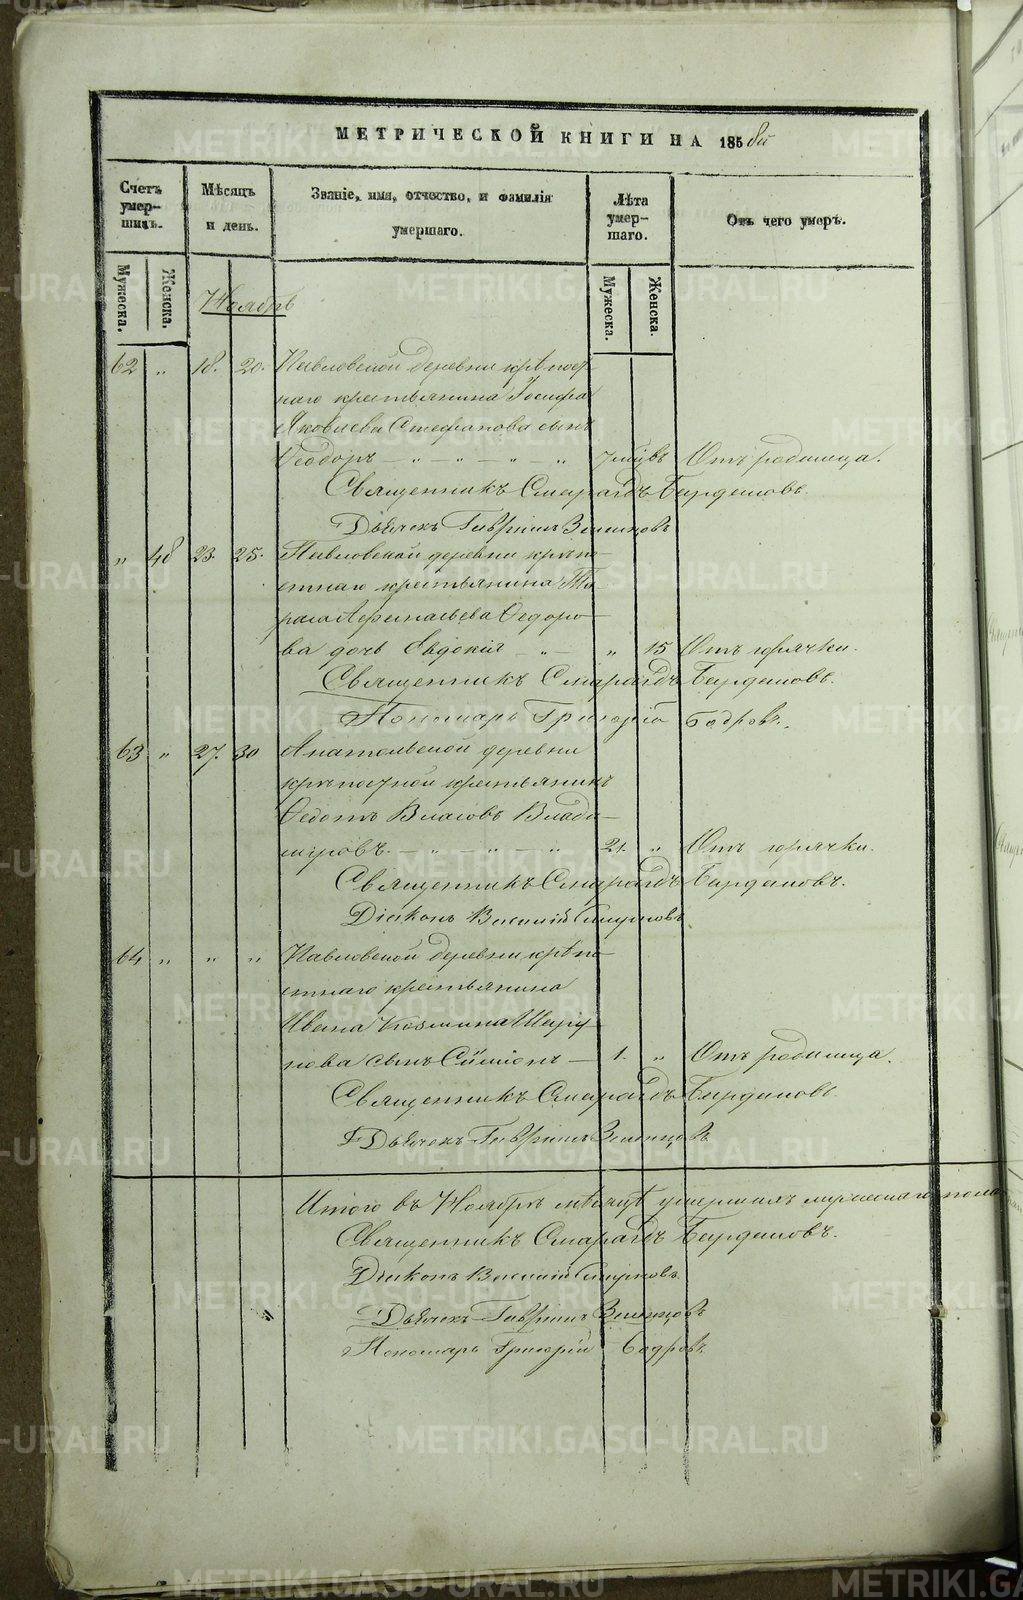 МЕТРИЧЕСКОЙ КНИГИ НА 1858й
Счетъ умер-шихъ.
Мѣсяцъ и день.
Званіе, имя, отчество, и фамилія умершаго.
Лѣта умер-шаго.
Отъ чего умеръ.
Мужеска. Женска.
Мужеска. Женска.
Ноябрь
62 „ 18. 20. Павловской деревни крѣпост
наго крестьянина Іосифа
Яковлева Стефанова сынъ
Ѳеодоръ — „ — „ — „ — „ 7 мцвъ Отъ родимца.
Священникъ Смарагдъ
Дьячекъ Гавріилъ Зеленцовъ
„ 48 23. 25. Павловской деревни крѣпо
стнаго крестьянина Та
раса Ѳедоро
ва дочь Евдокія — „ — „ 15 Отъ горячки.
Священникъ Смарагдъ
Пономарь Григорій Бодровъ.
63 „ 27. 30 Анатольской деревни
крѣпостной крестьянинъ
Ѳедотъ Власовъ Влади
міровъ. — „ — „ — „ 21. „ Отъ горячки.
Священникъ Смарагдъ
Діаконъ Василій Смирновъ
64 „ „ „ Павловской деревни крѣпо
стнаго крестьянина
Ивана Козмина
нова сынъ Сѵмеонъ — 1. „ Отъ родимца.
Священникъ Смарагдъ
Дьячекъ Гавріилъ Зеленцовъ
Итого въ Ноябрѣ мѣсяцѣ умершихъ мужескаго пола
Священникъ Смарагдъ
Діаконъ Василій Смирновъ
Дьячекъ Гавріилъ Зеленцовъ
Пономарь Григорій Бодровъ.
METRIKI.GASO-URAL.RU